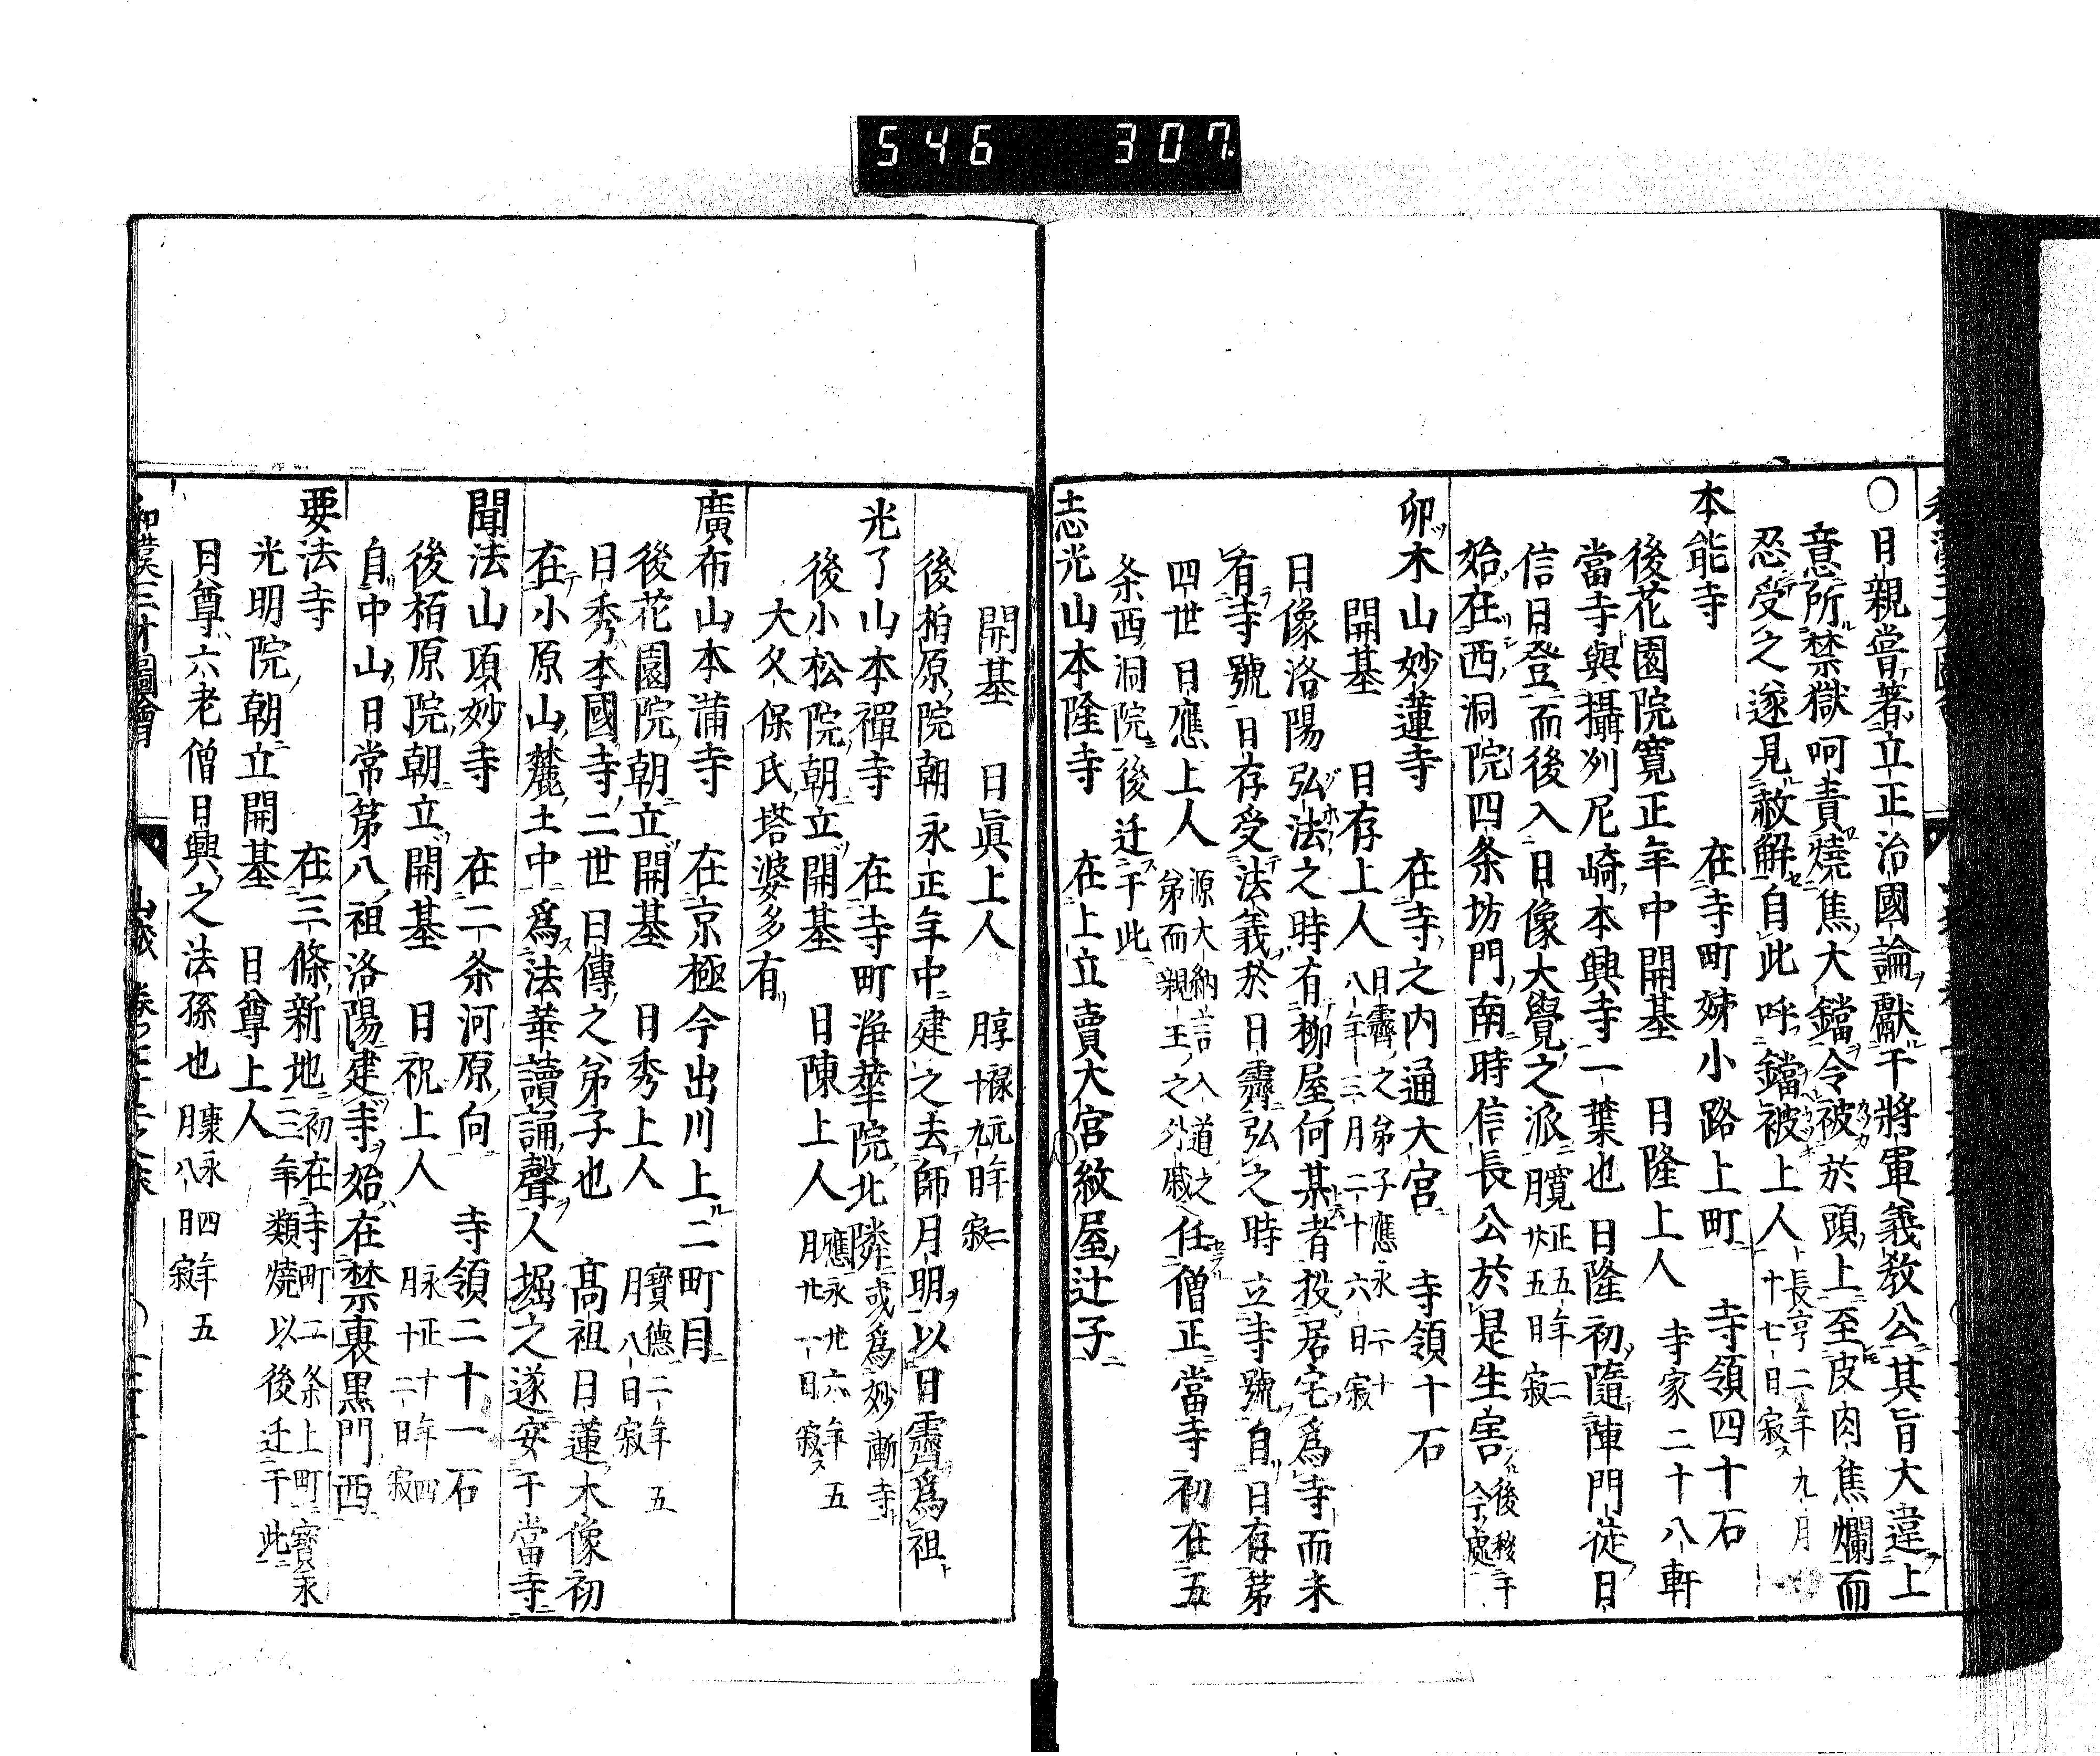 546 307
○日親嘗著立正治國論獻于將軍義敎公其旨大違上
意所禁獄呵責燒焦大鐺令被於頭上至皮肉焦爛而
忍受之遂見赦解自此呼鐺被上人長亨二年九月
十七日寂
本能寺 在寺町姊小路上町 寺領四十石
後花園院寛正年中開基 日隆上人 寺家二十八軒
當寺與攝列尼崎本興寺一葉也 日隆初隨陣門徒日
信日登而後入日像大覺之派寛正五年二
月廿五日寂
始在西洞院四条坊門南時信長公於是生害後移于
今處
卯木山妙蓮寺 在寺之内通大宮 寺領十石
開基 日存上人日霽之弟子應永二十
八年三月二十六日寂
日像洛陽弘法之時有柳屋何某者投居宅爲寺而未
有寺號日存受法義於日霽弘之時立寺號自日存第
四世日應上人源大納言入道之
弟而親王之外戚任僧正當寺初在五
条西洞院後迁于此
志光山本隆寺 在上立賣大宮紋屋辻子
開基 日眞上人 享禄元年二
月十九日寂
後柏原院朝永正年中建之去師月明以日霽爲祖
光了山本禪寺 在寺町浄華院北隣或爲妙漸寺
後小松院朝立開基 日陳上人應永廿六年五
月廿一日寂
大久保氏塔婆多有
廣布山本蒲寺 在京極今出川上二町目
後花園院朝立開基 日秀上人寶德二年五
月八日寂
日秀本國寺二世日傳之弟子也 髙祖日蓮木像初
在小原山麓土中爲法華讀誦聲人掘之遂安于當寺
聞法山頂妙寺 在二条河原向 寺領二十一石
後栢原院朝立開基 日祝上人永正十年四
月十二日寂
自中山日常第八祖洛陽建寺始在禁裏黒門西
要法寺 在三條新地初在寺町二条上町寶永
三年類燒以後迁于此
光明院朝立開基 日尊上人
日尊六老僧日興之法孫也康永四年五
月八日寂
和漢三才圖會 山城 卷之七十二之末